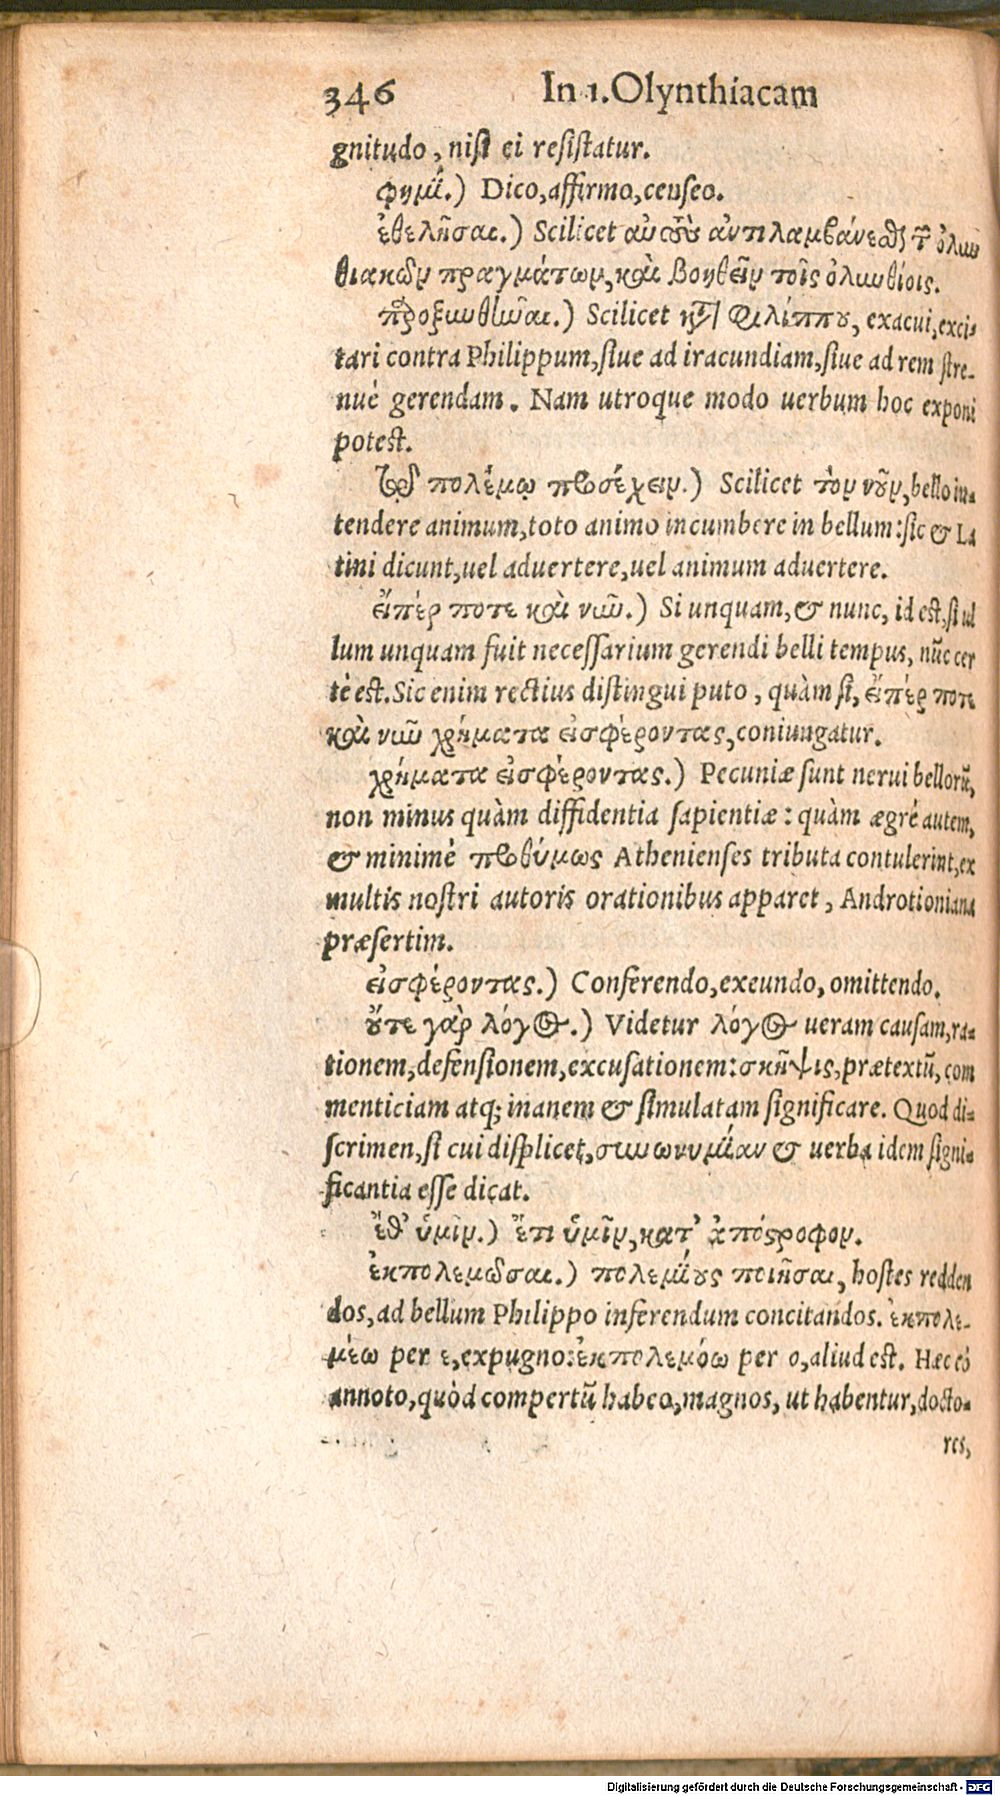 346 In 1. Olynthiacam
gnitudo, nisi ei resistatur.
φημί.) Dico, affirmo, censeo.
ἐθελῆσαι.) Scilicet αὐτοὺς ἀντιλαμβάνεσθαι τῶν ὀλυν
θιακῶν πραγμάτων, καὶ βοηθεῖν τοῖς ὀλυνθίοις.
παροξυνθῆναι.) Scilicet κατὰ Φιλίππου, exacui, exci-
tari contra Philippum, siue ad iracundiam, siue ad rem stre-
nuè gerendam. Nam utroque modo uerbum hoc exponi
potest.
τῷ πολέμῳ προσέχειν.) Scilicet τὸν νοῦν, bello in-
tendere animum, toto animo incumbere in bellum: sic & La
tini dicunt, uel aduertere, uel animum aduertere.
εἴπέρ ποτε καὶ νῦν.) Si unquam, & nunc, id est, si ul
lum unquam fuit necessarium gerendi belli tempus, nūc cer
tè est. Sic enim rectius distingui puto, quàm si, εἴπέρ ποτε
καὶ νῦν χρήματα εἰσφέροντας, coniungatur.
χρήματα εἰσφέροντας.) Pecuniæ sunt nerui bellorū,
non minus quàm diffidentia sapientiæ: quàm ægrè autem,
& minimè προθύμως Athenienses tributa contulerint, ex
multis nostri autoris orationibus apparet, Androtioniana
præsertim.
εἰσφέροντας.) Conferendo, exeundo, omittendo.
οὔτε γὰρ λόγος.) Videtur λόγος ueram causam, ra-
tionem, defensionem, excusationem: σκῆψις, prætextū, com
menticiam atq; inanem & simulatam significare. Quod di-
scrimen, si cui displicet, συνωνυμίαν & uerba idem signi-
ficantia esse dicat.
ἔθ᾽ ὑμῖν.) ἔτι ὑμῖν, κατ᾽ ἀπόστροφον.
ἐκπολεμῶσαι.) πολεμίους ποιῆσαι, hostes redden
dos, ad bellum Philippo inferendum concitandos. ἐκπολε-
μέω per ε, expugno: ἐκπολεμόω per ο, aliud est. Hæc eò
annoto, quòd compertū habeo, magnos, ut habentur, docto-
res,
Digitalisierung gefördert durch die Deutsche Forschungsgemeinschaft - DFG